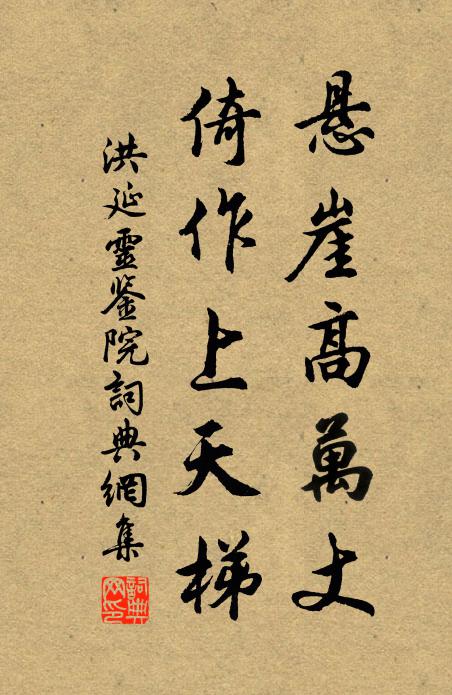 悬崖高萬丈
倚作上天梯
洪延靈鉴院詞典網集
詞典网印